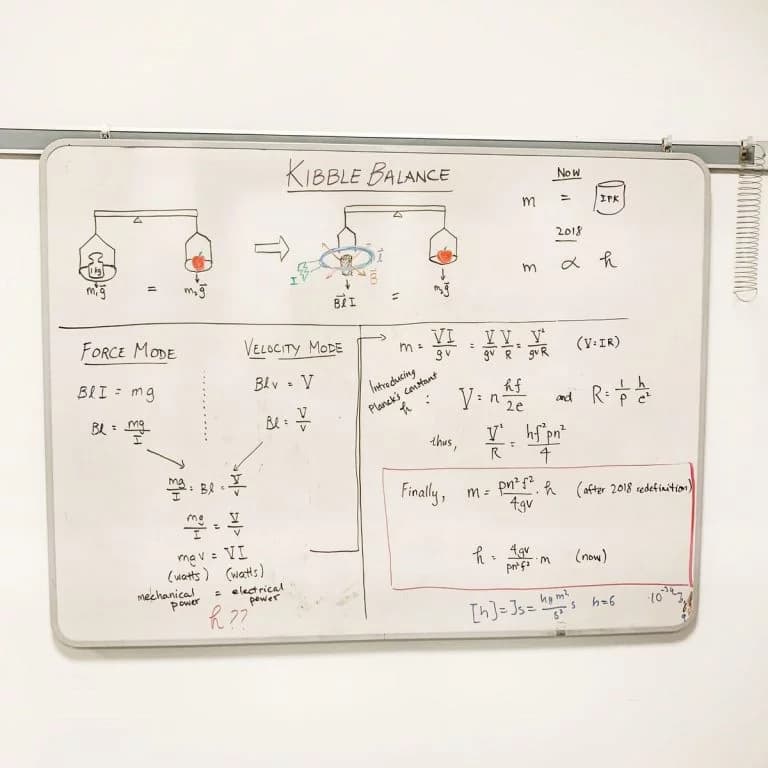 KIBBLE BALANCE
Now
m = IPK
2018
m ∝ h
1 kg
m₁g⃗ = m₂g⃗
I
l⃗
B⃗
B⃗lI = m₂g⃗
FORCE MODE
BlI = mg
Bl = mg/I
VELOCITY MODE
Blv = V
Bl = V/v
mg/I = Bl = V/v
mg/I = V/v
mgv = VI
(watts) (watts)
mechanical power = electrical power
h??
m = VI/gv = V/gv V/R = V²/gvR (V=IR)
Introducing
Planck's constant
h :
V = n hf/2e and R = 1/p h/e²
thus, V²/R = hf²pn²/4
Finally, m = pn²f²/4gv · h (after 2018 redefinition)
h = 4gv/pn²f² · m (now)
[h] = Js = kg m²/s² s h=6 ·10⁻³⁴ J